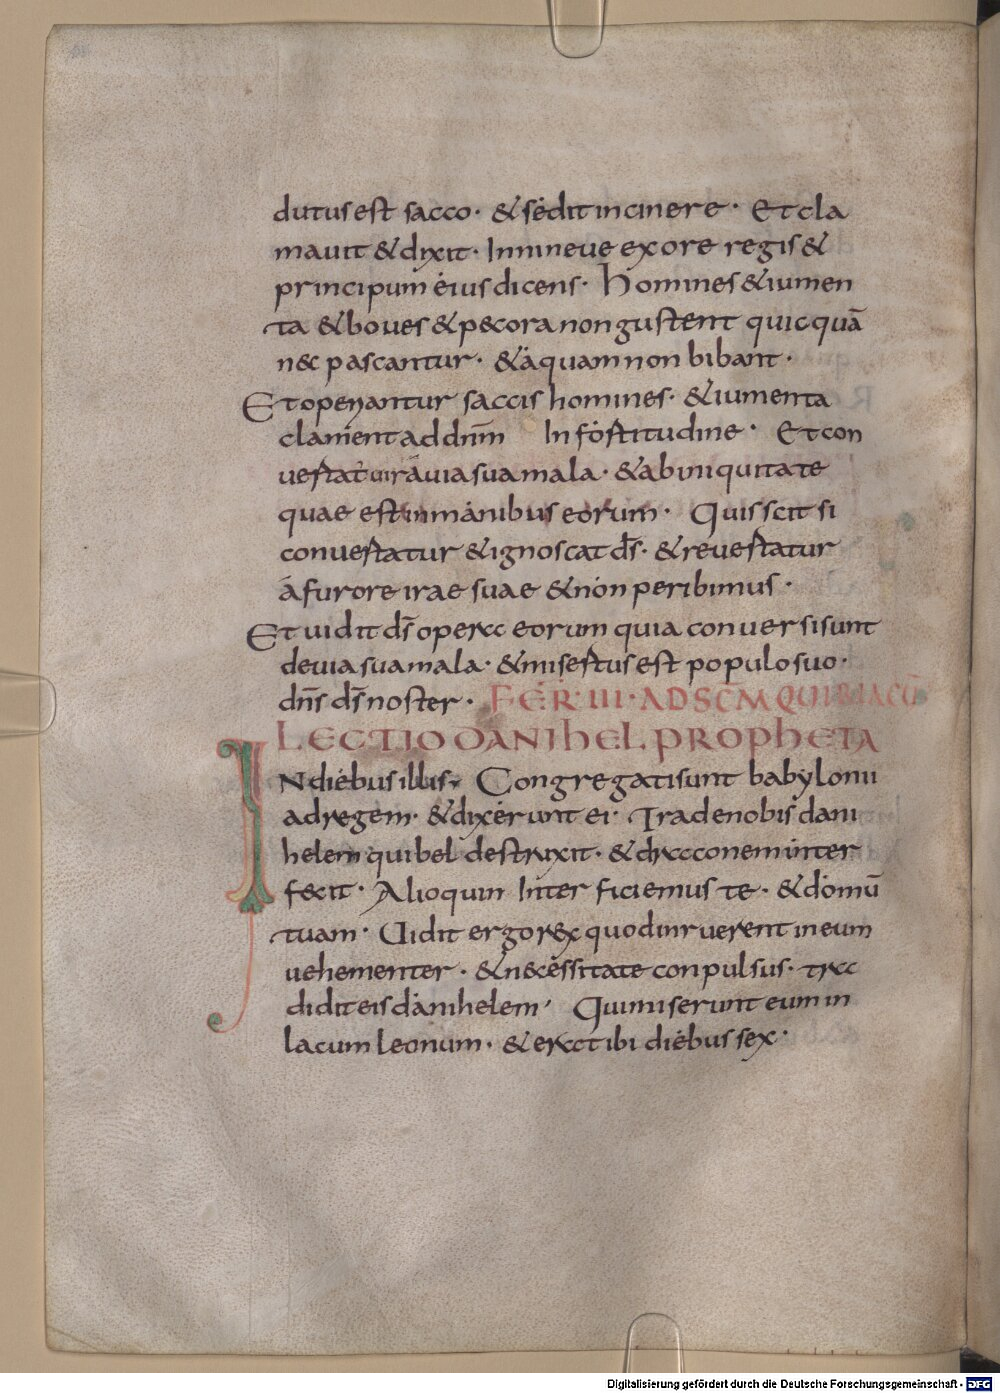 dutus est sacco· & sedit in cinere· Et cla
mauit & dixit· In nineue ex ore regis &
principum eius dicens· Homines & iumen
ta & boues & pecora non gustent quicquā
nec pascantur· & aquam non bibant·
Et operiantur saccis homines· & iumenta
clament ad dn̄m In fortitudine· Et con
uertatur uir a uia sua mala· & ab iniquitate
quae est in manibus eorum· Quis scit si
conuertatur & ignoscat d̄s· & reuertatur
a furore irae suae & non peribimus·
Et uidit d̄s opera eorum quia conuersi sunt
de uia sua mala· & misertus est populo suo·
dn̄s d̄s noster· FER·III·AD SC̄M QUIRIACŪ
LECTIO DANIHEL PROPHETA
IN diebus illis· Congregati sunt babylonii
ad regem· & dixerunt ei· Trade nobis dani
helem qui bel destruxit· & draconem inter
fecit· Alioquin Inter ficiemus te· & domū
tuam· Uidit ergo rex quod inruerent in eum
uehementer· & necessitate conpulsus· tra
didit eis danihelem· Qui miserunt eum in
lacum leonum· & erat ibi diebus sex·
Digitalisierung gefördert durch die Deutsche Forschungsgemeinschaft - DFG